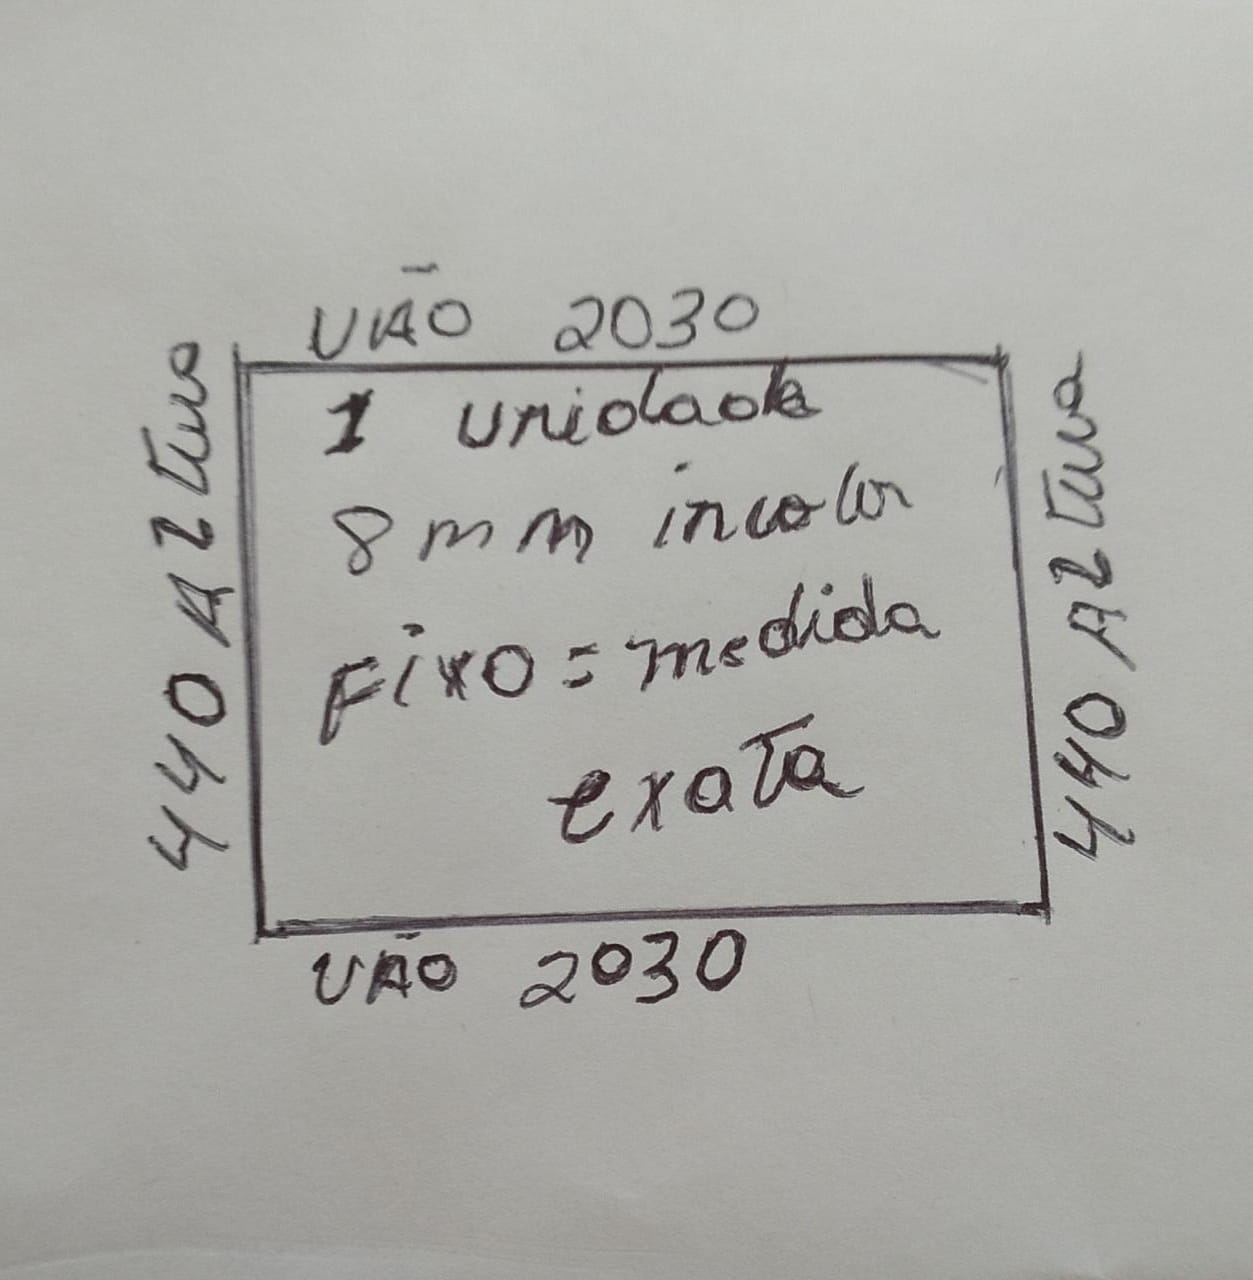 VÃO 2030
1 unidade
8 mm incolor
Fixo = medida
exata
440 Altura
440 Altura
VÃO 2030